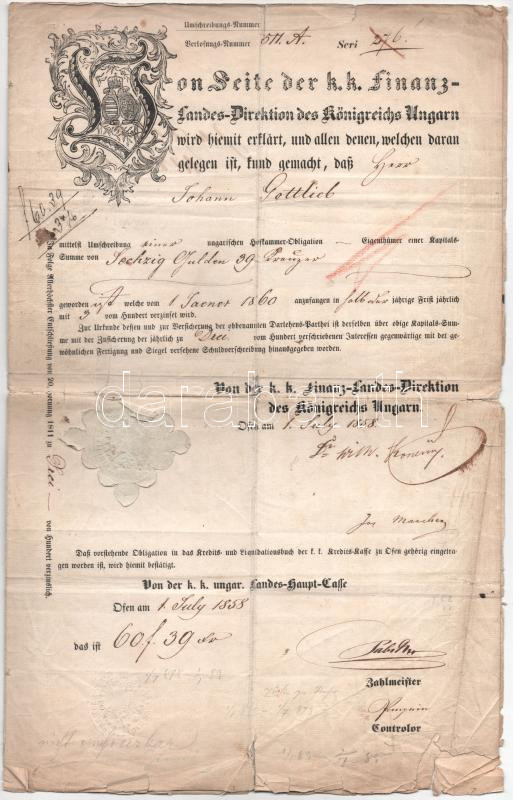 Umschreibungs-Nummer
Verlosungs-Nummer 511. A. Seri 276.
Von Seite der k.k. Finanz-
Landes-Direktion des Königreichs Ungarn
wird hiemit erklärt, und allen denen, welchen daran
gelegen ist, kund gemacht, daß Herr
Johann Gottlieb
60.39
mittelst Umschreibung einer ungarischen Hofkammer-Obligation — Eigenthümer einer Kapitals-
Summe von Sechzig Gulden 39 Kreuzer
geworden ist welche vom 1 1860 anzufangen in halb der jährige Frist jährlich
mit 3 vom Hundert verzinset wird.
Zur Urkunde dessen und zur Versicherung der obbenannten Darlehens-Parthei ist derselben über obige Kapitals-Sum-
me mit der Zusicherung der jährlich zu Drei vom Hundert verschriebenen Interessen gegenwärtige mit der ge-
wöhnlichen Fertigung und Siegel versehene Schuldverschreibung hinausgegeben worden.
Von der k. k. Finanz-Landes-Direktion
des Königreichs Ungarn.
Ofen am 1. July 1858.
In Folge Allerhöchster Entschließung vom 20. 1811 zu Drei — von Hundert verzinslich.
Daß vorstehende Obligation in das Kredits- und Liquidationsbuch der k. k. Kredits-Kasse zu Ofen gehörig eingetra-
gen worden ist, wird hiemit bestätigt.
Von der k. k. ungar. Landes-Haupt-Casse
Ofen am 1. July 1858
das ist 60 f. 39 xr
Zahlmeister
Controlor
darabanth